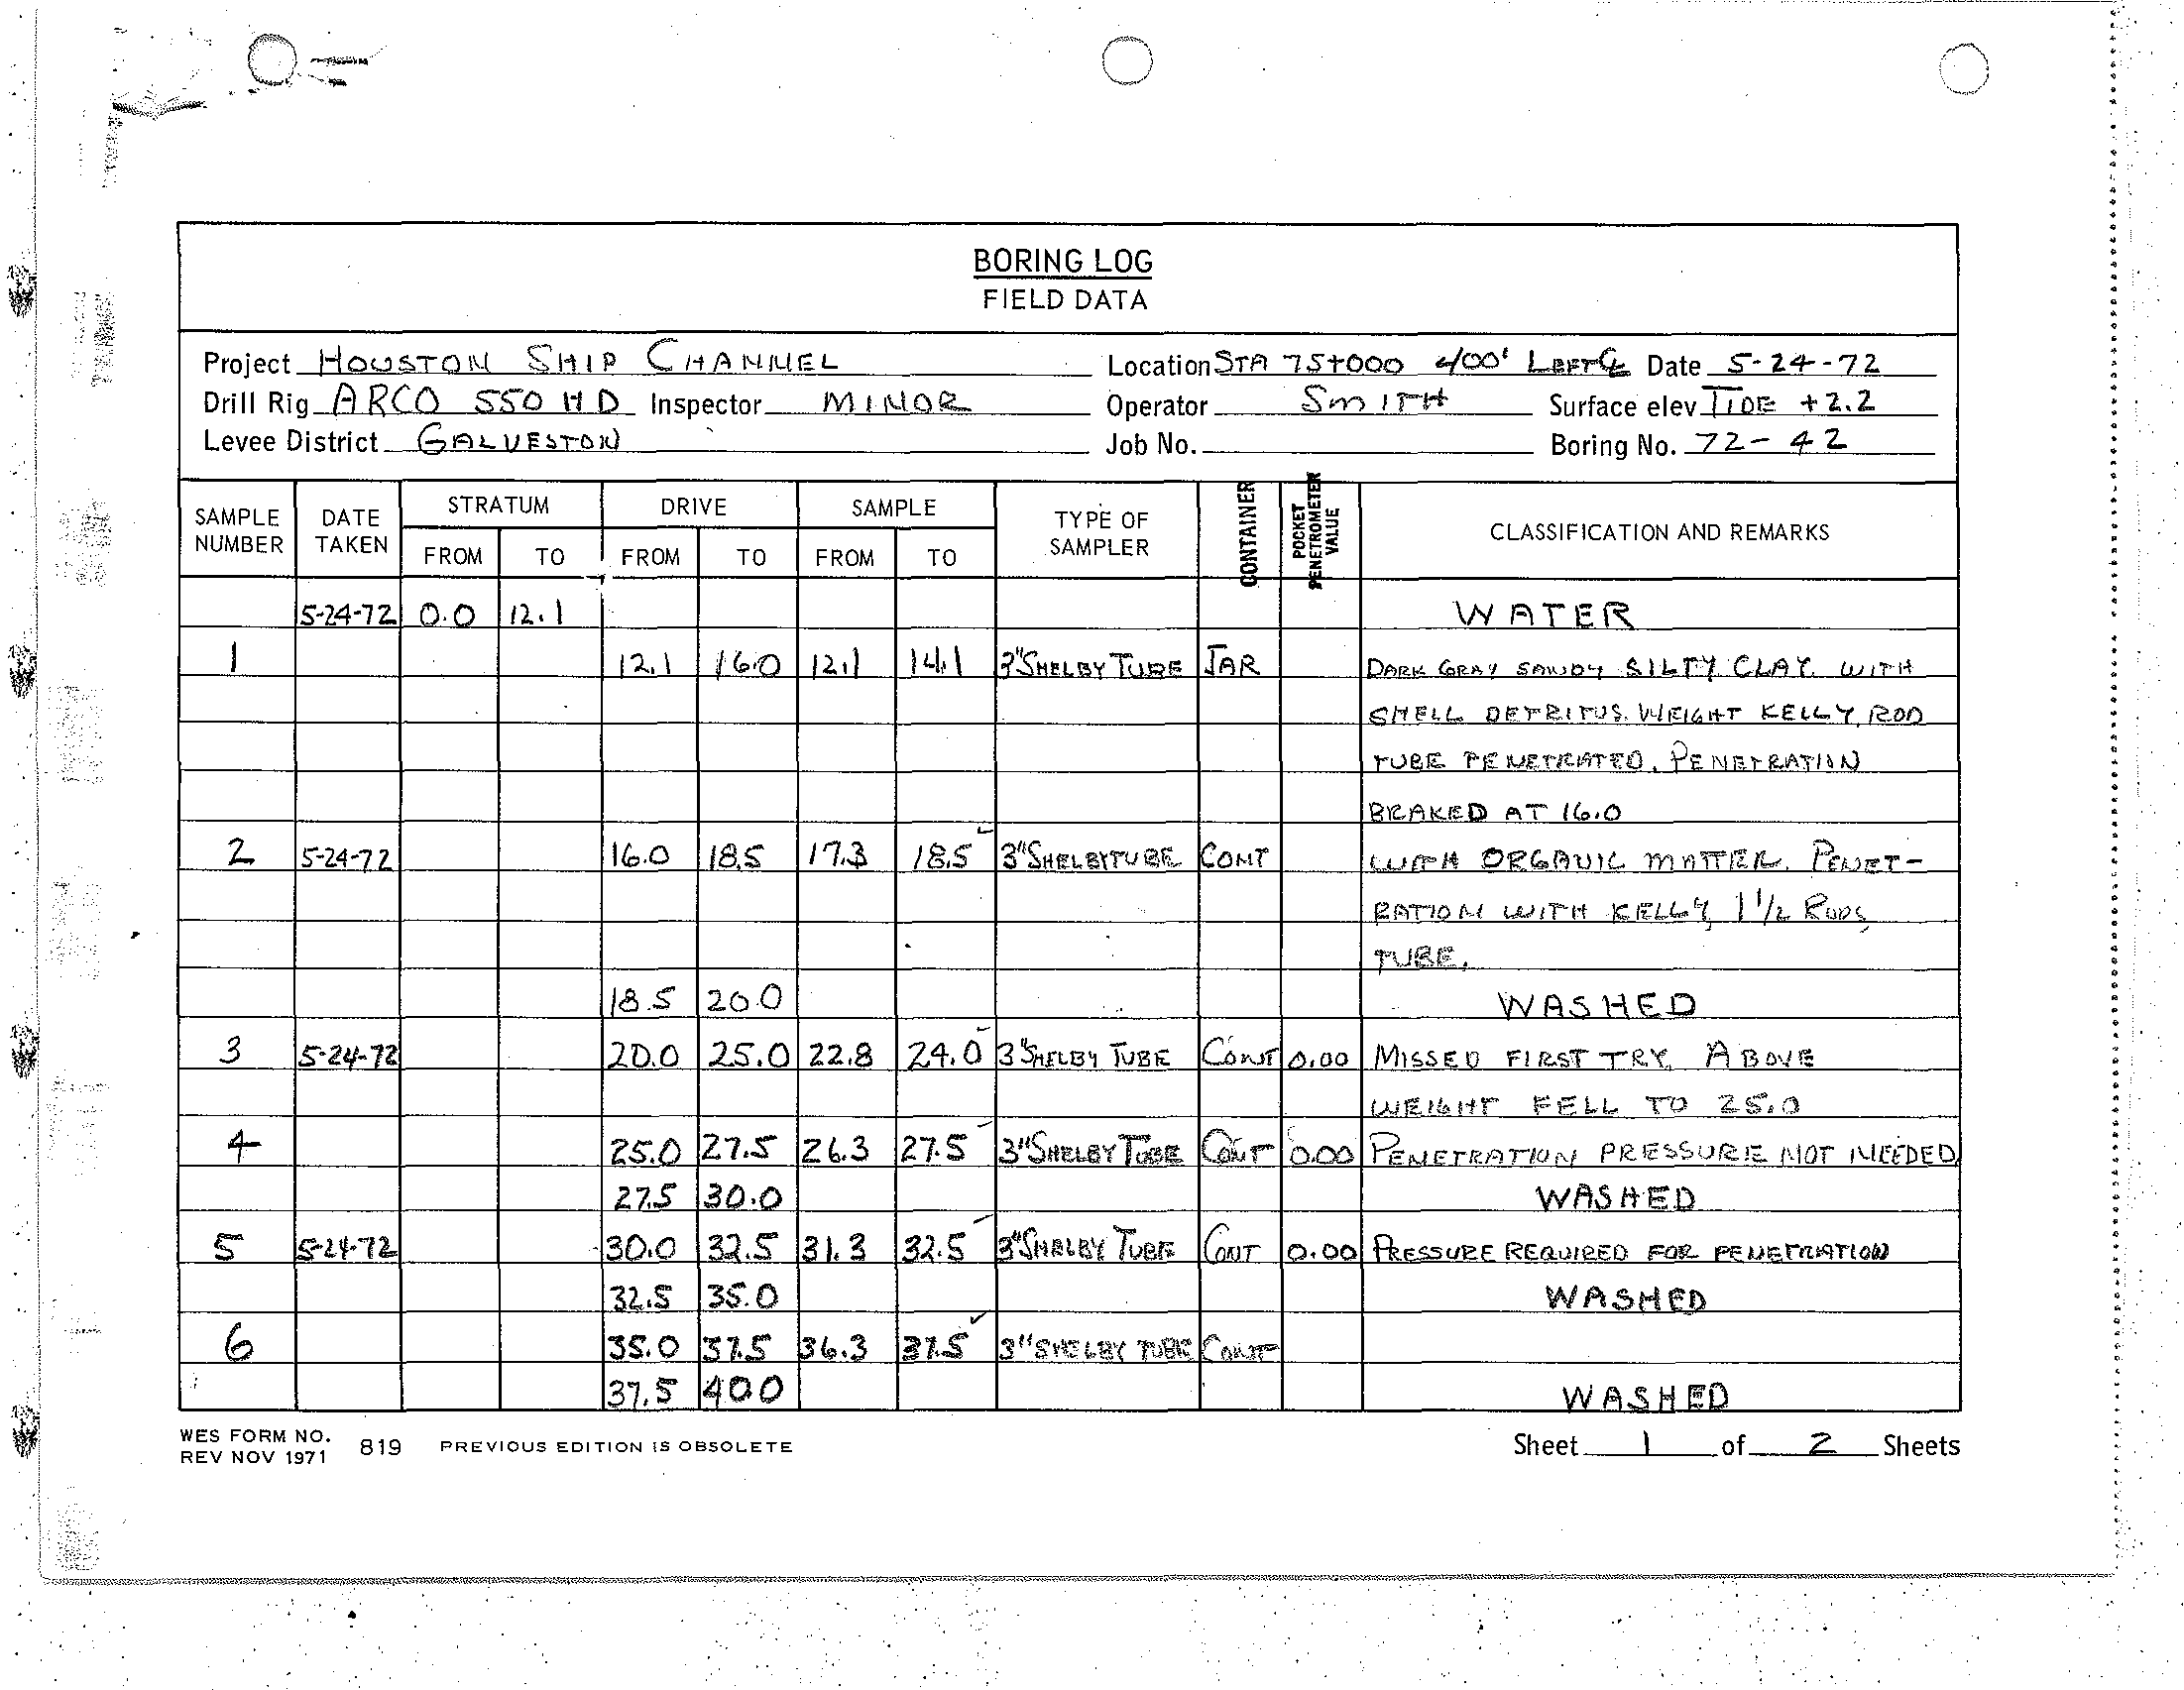 BORING LOG
FIELD DATA
Project HOUSTON SHIP CHANNEL Location STA 75+000 400' LEFT ℄ Date 5-24-72
Drill Rig ARCO 550 HD Inspector MINOR Operator SMITH Surface elev TIDE +2.2
Levee District GALVESTON Job No. Boring No. 72-42
SAMPLE NUMBER DATE TAKEN STRATUM DRIVE SAMPLE TYPE OF SAMPLER CONTAINER POCKET PENETROMETER VALUE CLASSIFICATION AND REMARKS
FROM TO FROM TO FROM TO
5-24-72 0.0 12.1 WATER
1 12.1 16.0 12.1 14.1 3" SHELBY TUBE JAR DARK GRAY SANDY SILTY CLAY. WITH
SHELL DETRITUS. WEIGHT KELLY, ROD
TUBE PENETRATED. PENETRATION
BRAKED AT 16.0
2 5-24-72 16.0 18.5 17.3 18.5 3" SHELBY TUBE CONT WITH ORGANIC MATTER. PENET-
RATION WITH KELLY, 1 1/2 RODS,
TUBE.
18.5 20.0 WASHED
3 5-24-72 20.0 25.0 22.8 24.0 3" SHELBY TUBE CONT 0.00 MISSED FIRST TRY. ABOVE
WEIGHT FELL TO 25.0
4 25.0 27.5 26.3 27.5 3" SHELBY TUBE CONT 0.00 PENETRATION PRESSURE NOT NEEDED
27.5 30.0 WASHED
5 5-24-72 30.0 32.5 31.3 32.5 3" SHELBY TUBE CONT 0.00 PRESSURE REQUIRED FOR PENETRATION
32.5 35.0 WASHED
6 35.0 37.5 36.3 37.5 3" SHELBY TUBE CONT
37.5 40.0 WASHED
WES FORM NO. 819 PREVIOUS EDITION IS OBSOLETE Sheet 1 of 2 Sheets
REV NOV 1971